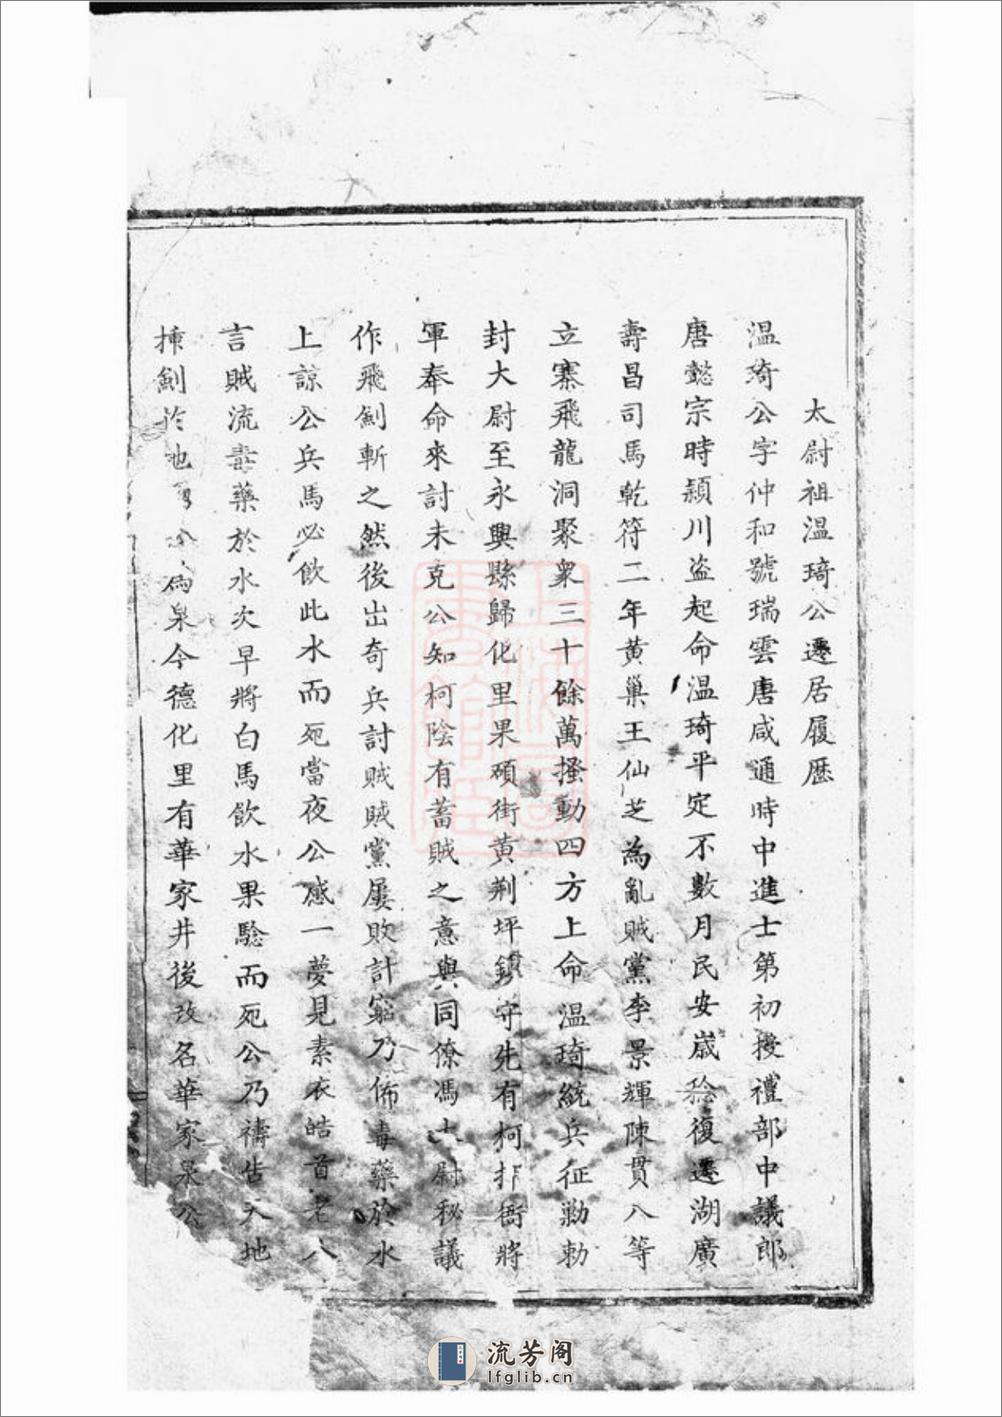 太尉祖温琦公遷居履歷
温琦公字仲和號瑞雲唐咸通時中進士第初授禮部中議郎
唐懿宗時潁川盗起命温琦平定不數月民安歲稔復遷湖廣
壽昌司馬乾符二年黄巢王仙芝為亂賊黨李景輝陳貫八等
立寨飛龍洞聚衆三十餘萬搔動四方上命温琦統兵征勦勅
封大尉至永興縣歸化里果碩街黄荆坪鎮守先有柯 衙將
軍奉命來討未克公知柯陰有蓄賊之意與同僚馮 尉秘議
作飛劍斬之然後出奇兵討賊賊黨屢敗計窮乃佈毒藥於水
上諒公兵馬必飲此水而死當夜公感一夢見素衣皓首老人
言賊流毒藥於水次早將白馬飲水果驗而死公乃禱告天地
揷劍於地 為泉今德化里有華家井後改名華家泉公
上海圖書館藏
流芳阁
lfglib.cn